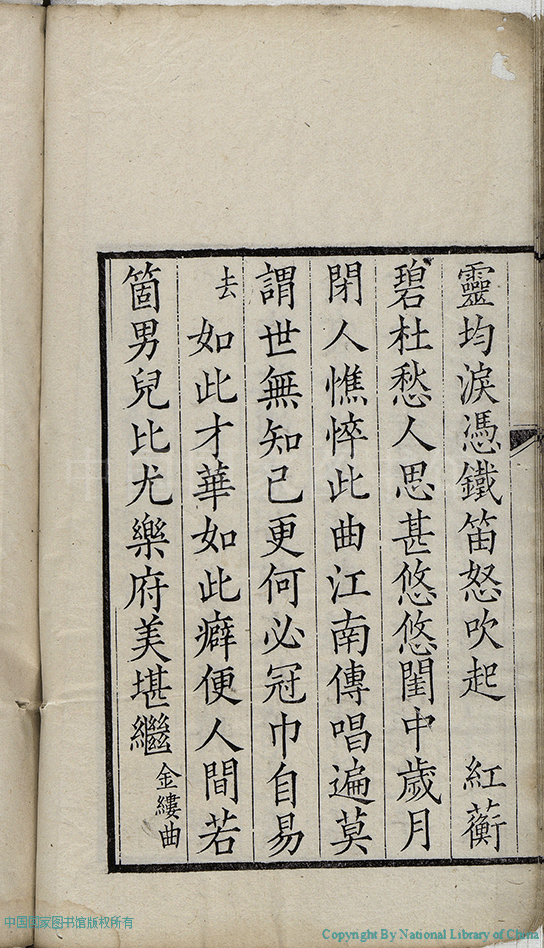 靈均淚憑鐵笛怒吹起　紅蘅
碧杜愁人思甚悠悠閨中歲月
閉人憔悴此曲江南傳唱遍莫
謂世無知己更何必冠巾自易
去　如此才華如此癖便人間若
箇男兒比尤樂府美堪繼金縷曲
中国国家图书馆版权所有
Copyright By National Library of China